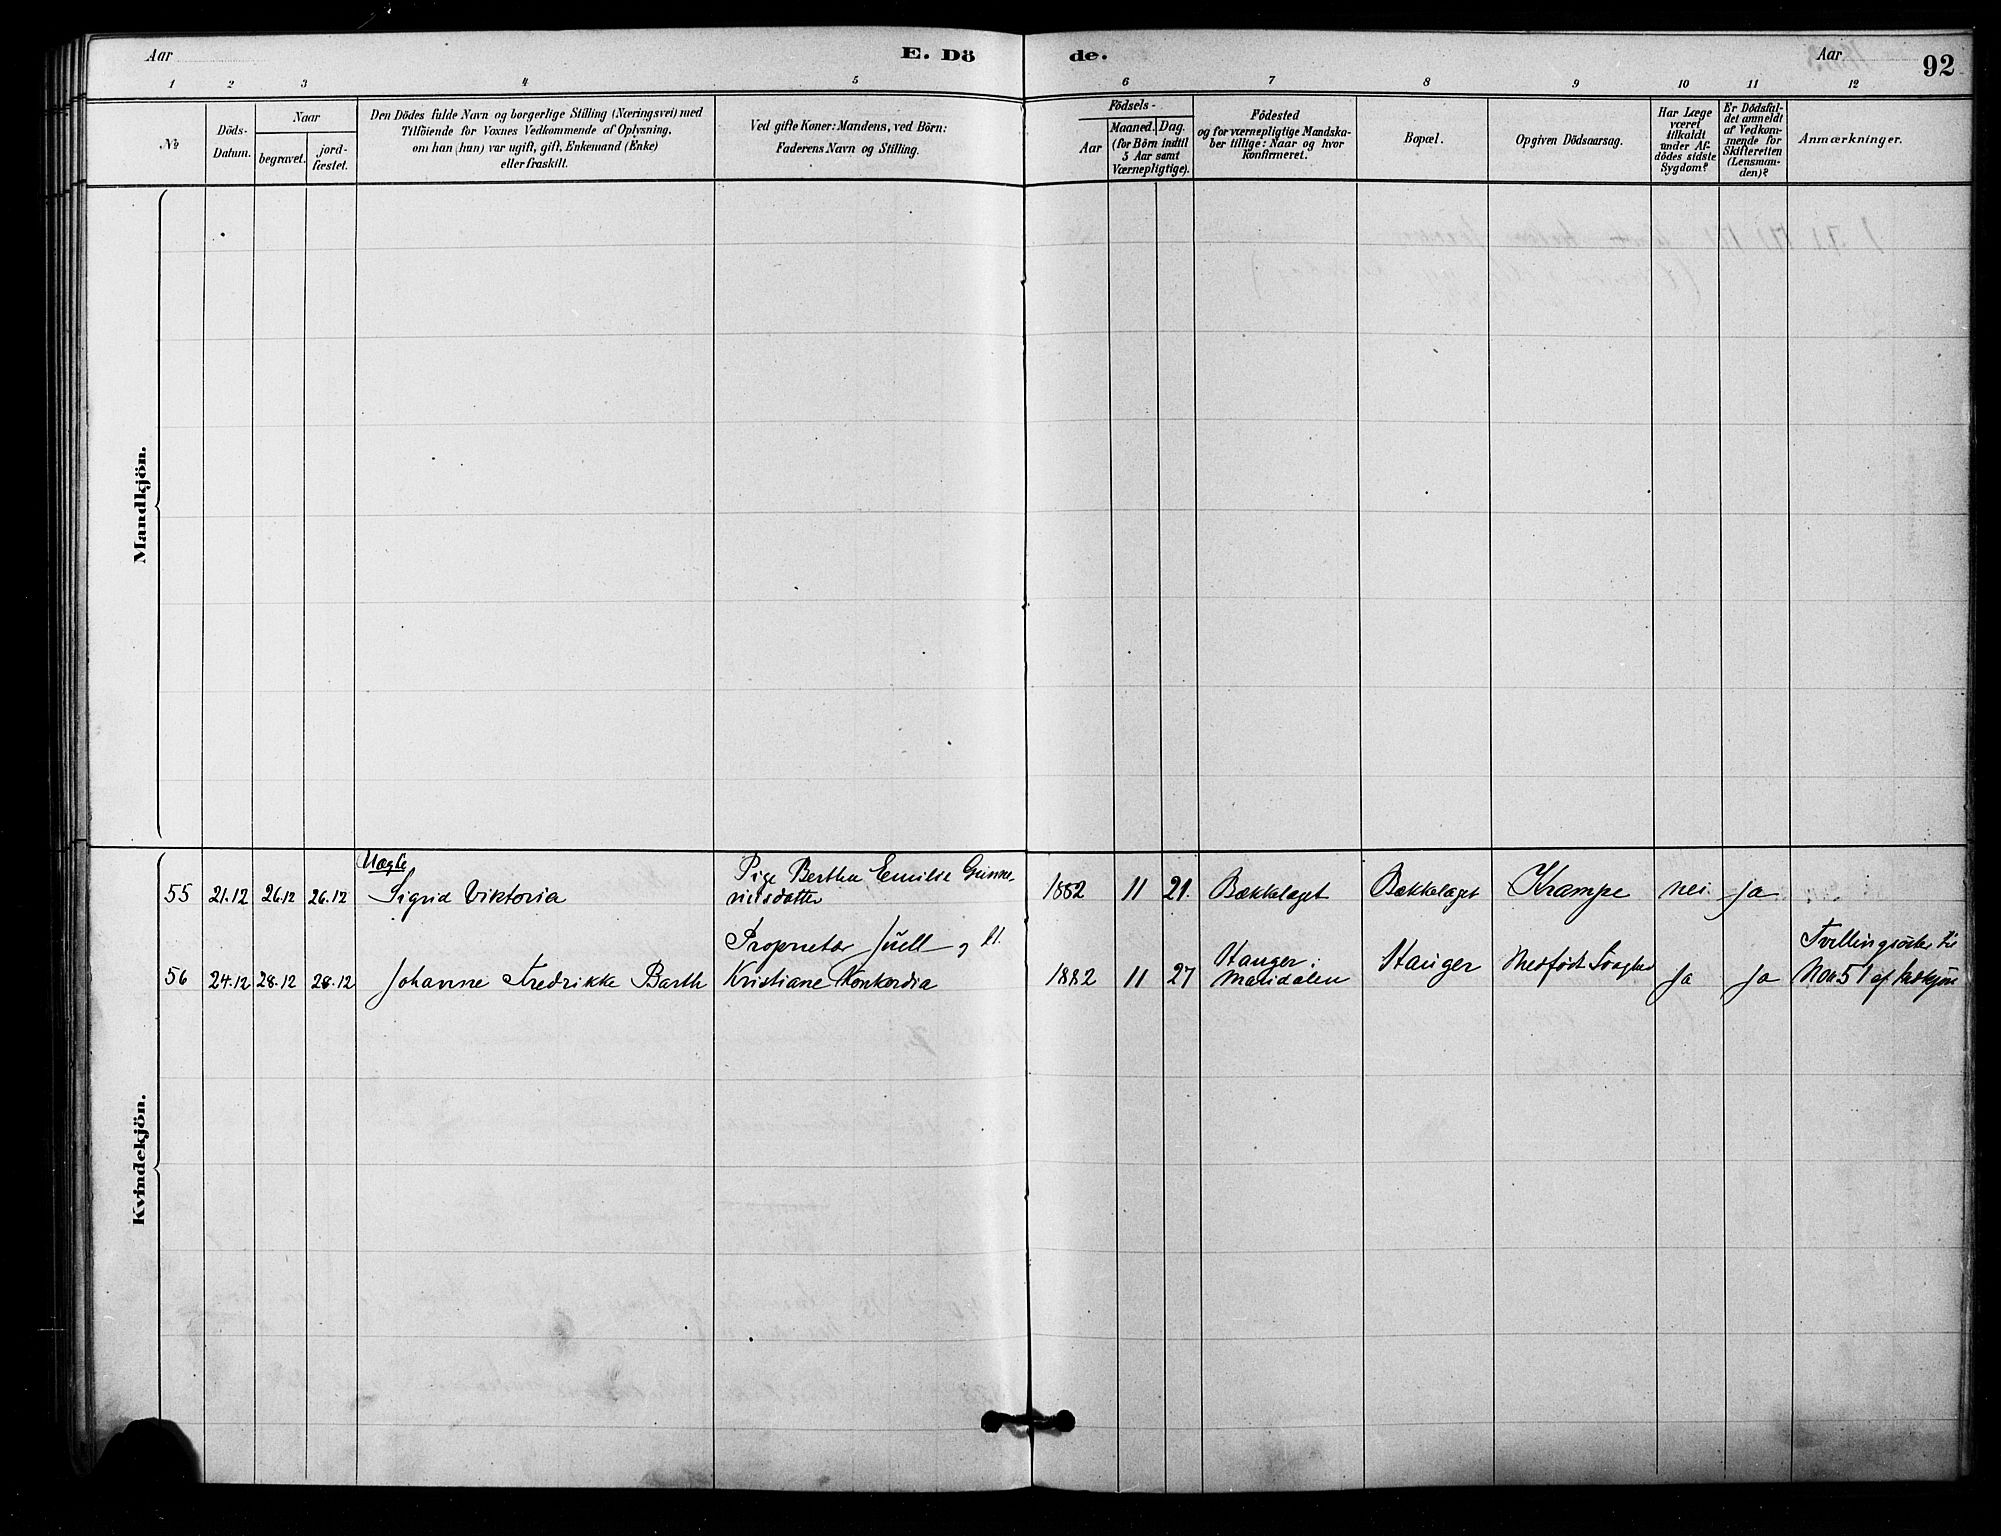 Aar
E. Dö
de.
Aar
92
1 2 3 4 5 6 7 8 9 10 11 12
No
Döds-
Datum.
Naar
begravet.
jord-
fæstet.
Den Dödes fulde Navn og borgerlige Stilling (Næringsvei) med
Tilföiende for Voxnes Vedkommende af Oplysning,
om han (hun) var ugift, gift, Enkemand (Enke)
eller fraskilt.
Ved gifte Koner: Mandens, ved Börn:
Faderens Navn og Stilling.
Födsels-
Aar
Maaned. Dag.
(for Börn indtil
5 Aar samt
Værnepligtige).
Födested
og for værnepligtige Mandska-
ber tillige: Naar og hvor
konfirmeret.
Bopæl.
Opgiven Dödsaarsag.
Har Læge
været
tilkaldt
under Af-
dödes sidste
Sygdom?
Er Dödsfal-
det anmeldt
af Vedkom-
mende for
Skifteretten
(Lensman-
den)?
Anmærkninger.
Mandkjön.
Kvindekjön.
Uægte
Pige Bertha Emilie Gunne-
55 21.12 26.12 26.12 Sigrid Viktoria
rielsdatter
1882 11 21. Bækkelaget Bækkelaget Krampe nei ja
Proprietær Juell og H.
56 24.12 28.12 28.12 Johanne Fredrikke Barth Kristiane Konkordia
1882 11 27
Stanger
Maridalen
Stanger
Medfödt Svaghed
Ja ja
Tvillingsöster til
No 51 af Mdkjön